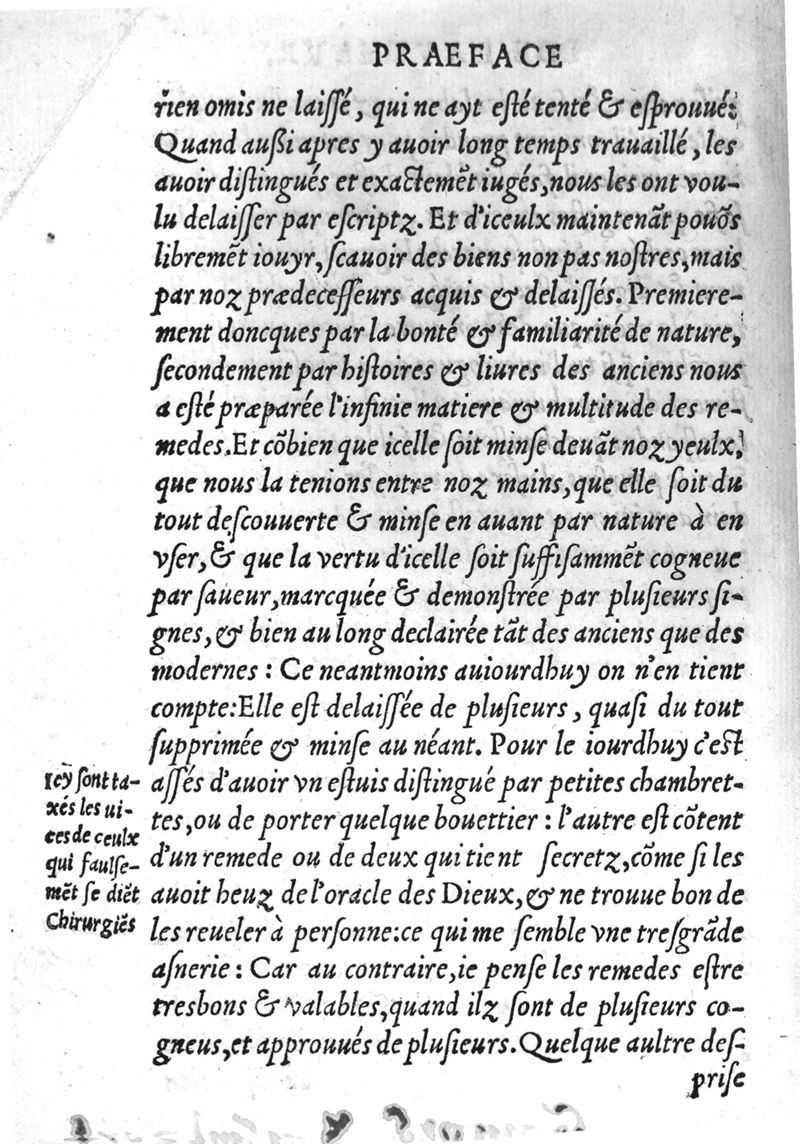 PRAEFACE
rien omis ne laiſſé, qui ne ayt eſté tenté & eſprouué:
Quand außi apres y auoir long temps trauaillé, les
auoir diſtingués et exactemẽt iugés, nous les ont vou-
lu delaiſſer par eſcriptz. Et d'iceulx maintenãt pouõs
libremẽt iouyr, ſcauoir des biens non pas noſtres, mais
par noz prædeceſſeurs acquis & delaiſſés. Premiere-
ment doncques par la bonté & familiarité de nature,
ſecondement par hiſtoires & liures des anciens nous
a eſté præparée l'infinie matiere & multitude des re-
medes. Et cõbien que icelle ſoit minſe deuãt noz yeulx,
que nous la tenions entre noz mains, que elle ſoit du
tout deſcouuerte & minſe en auant par nature à en
vſer, & que la vertu d'icelle ſoit ſuffiſammẽt cogneue
par ſaueur, marcquée & demonſtrée par pluſieurs ſi-
gnes, & bien au long declairée tãt des anciens que des
modernes : Ce neantmoins auiourdhuy on n'en tient
compte: Elle eſt delaiſſée de pluſieurs, quaſi du tout
ſupprimée & minſe au néant. Pour le iourdhuy c'eſt
aſſés d'auoir vn eſtuis diſtingué par petites chambret-
tes, ou de porter quelque bouettier : l'autre eſt cõtent
d'un remede ou de deux qui tient ſecretz, cõme ſi les
auoit heuz de l'oracle des Dieux, & ne trouue bon de
les reueler à perſonne: ce qui me ſemble vne treſgrãde
aſnerie : Car au contraire, ie penſe les remedes eſtre
tresbons & valables, quand ilz ſont de pluſieurs co-
gneus, et approuués de pluſieurs. Quelque aultre deſ-
priſe
Icy ſont ta-
xés les ui-
ces de ceulx
qui faulſe-
mẽt ſe diẽt
Chirurgiẽs